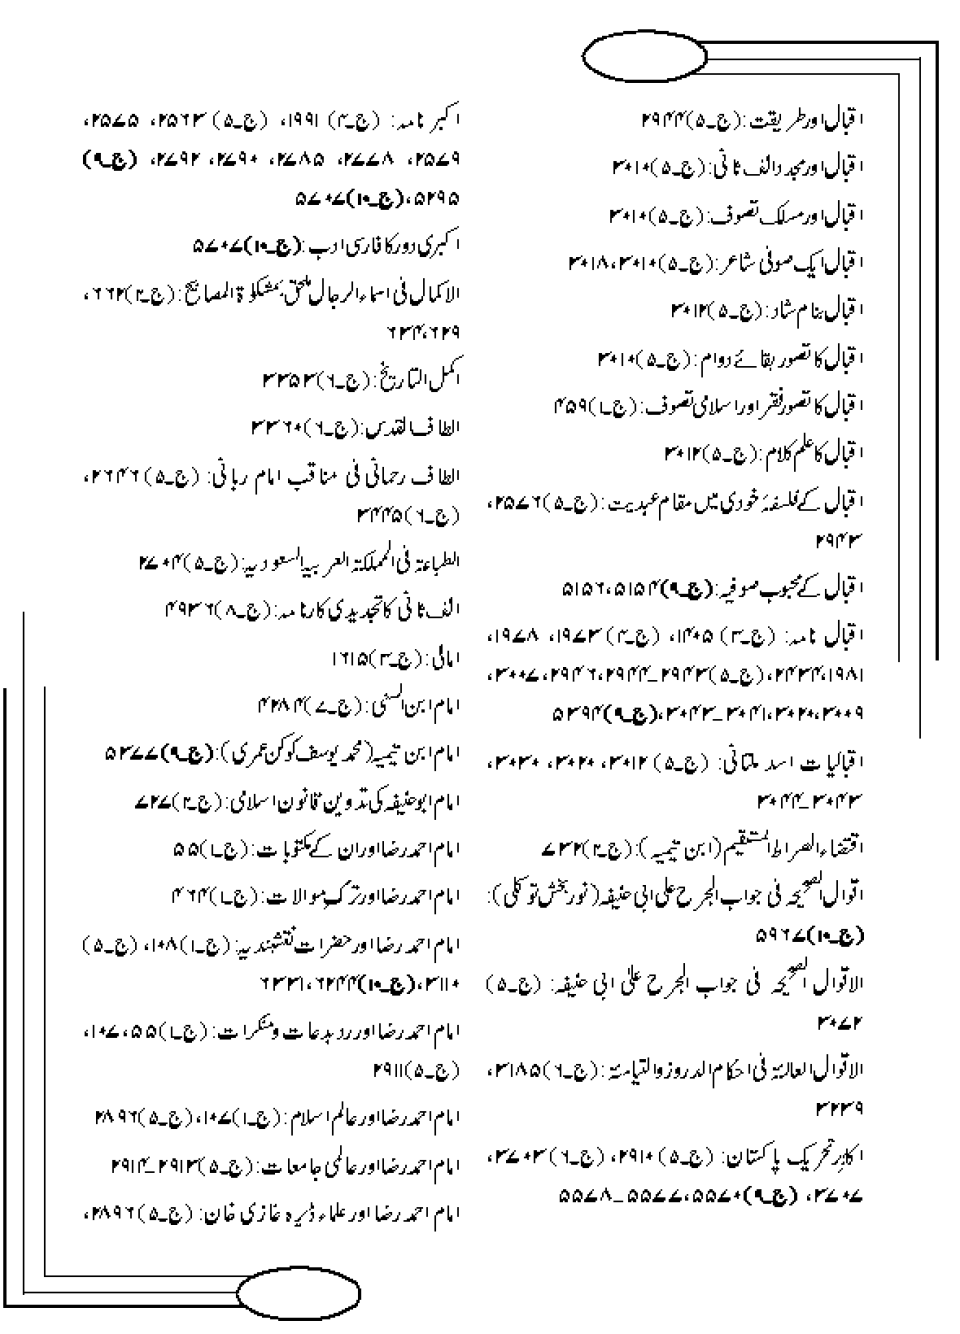 اقبال اور طریقت: (ج۔۵)۲۹۴۴
اقبال اور مجدد الف ثانی: (ج۔۵)۳۰۱۰
اقبال اور مسلک تصوف: (ج۔۵)۳۰۱۰
اقبال ایک صوفی شاعر: (ج۔۵)۳۰۱۰، ۳۰۱۸
اقبال بنام شاد: (ج۔۵)۳۰۱۲
اقبال کا تصور بقائے دوام: (ج۔۵)۳۰۱۰
اقبال کا تصور فقر اور اسلامی تصوف: (ج۔۱)۴۵۹
اقبال کا علم کلام: (ج۔۵)۳۰۱۲
اقبال کے فلسفۂ خودی میں مقام عبدیت: (ج۔۵)۲۵۷۶،
۲۹۴۳
اقبال کے محبوب صوفیہ: (ج۔۹)۵۱۵۴، ۵۱۵۶
اقبال نامہ: (ج۔۳)۱۴۰۵، (ج۔۴)۱۹۷۳، ۱۹۷۸،
۱۹۸۱، ۲۴۳۴، (ج۔۵)۲۹۴۳۔۲۹۴۴، ۲۹۴۶، ۳۰۰۷،
۳۰۰۹، ۳۰۲۰، ۳۰۴۱۔۳۰۴۳، (ج۔۹)۵۳۹۴
اقبالیات اسد ملتانی: (ج۔۵)۳۰۱۲، ۳۰۲۰، ۳۰۳۰،
۳۰۴۳۔۳۰۴۴
اقتضاء الصراط المستقیم (ابن تیمیہ): (ج۔۲)۷۳۲
اقوال الصحیحہ فی جواب الجرح علی ابی حنیفہ (نور بخش توکلی):
(ج۔۱۰)۵۹۶۷
الاقوال الصحیحہ فی جواب الجرح علیٰ ابی حنیفہ: (ج۔۵)
۳۰۷۲
الاقوال العالیۃ فی احکام الدروز والتیامنۃ: (ج۔۶)۳۱۸۵،
۳۲۳۹
اکابر تحریک پاکستان: (ج۔۵)۲۹۱۰، (ج۔۶)۳۷۰۳،
۳۷۰۷، (ج۔۹)۵۵۷۰، ۵۵۷۷۔۵۵۷۸
اکبر نامہ: (ج۔۴)۱۹۹۱، (ج۔۵)۲۵۶۳، ۲۵۷۵،
۲۵۷۹، ۲۷۷۸، ۲۷۸۵، ۲۷۹۰، ۲۷۹۲، (ج۔۹)
۵۲۹۵، (ج۔۱۰)۵۷۰۷
اکبری دور کا فارسی ادب: (ج۔۱۰)۵۷۰۷
الاکمال فی اسماء الرجال ملحق بمشکوٰۃ المصابیح: (ج۔۲)۶۶۲،
۶۲۹، ۶۳۴
اکمل التاریخ: (ج۔۶)۳۳۵۳
الطاف القدس: (ج۔۶)۳۳۶۰
الطاف رحمانی فی مناقب امام ربانی: (ج۔۵)۲۶۴۶،
(ج۔۶)۳۴۴۵
الطباعۃ فی المملکۃ العربیہ السعودیہ: (ج۔۵)۲۷۰۴
الف ثانی کا تجدیدی کارنامہ: (ج۔۸)۴۹۳۶
امالی: (ج۔۳)۱۶۱۵
امام ابن السنی: (ج۔۷)۴۲۸۴
امام ابن تیمیہ (محمد یوسف کوکن عمری): (ج۔۹)۵۳۷۷
امام ابوحنیفہ کی تدوین قانون اسلامی: (ج۔۲)۷۲۷
امام احمد رضا اور ان کے مکتوبات: (ج۔۱)۵۵
امام احمد رضا اور ترک موالات: (ج۔۱)۴۶۴
امام احمد رضا اور حضرات نقشبندیہ: (ج۔۱)۱۰۸، (ج۔۵)
۳۱۱۰، (ج۔۱۰)۶۲۴۴، ۶۳۳۱
امام احمد رضا اور رد بدعات ومنکرات: (ج۔۱)۵۵، ۱۰۷،
(ج۔۵)۲۹۱۱
امام احمد رضا اور عالم اسلام: (ج۔۱)۱۰۷، (ج۔۵)۲۸۹۶
امام احمد رضا اور عالمی جامعات: (ج۔۵)۲۹۱۳۔۲۹۱۴
امام احمد رضا اور علماء ڈیرہ غازی خان: (ج۔۵)۲۸۹۶،